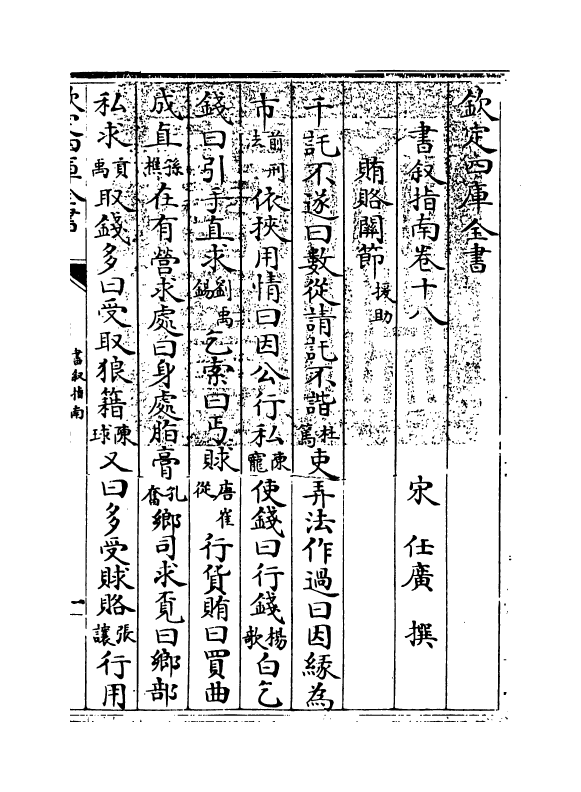 欽定四庫全書
書叙指南卷十八　宋　任廣　撰
賄賂關節援助
干託不遂曰數從請託不諧杜篤吏弄法作過曰因緣為
市前刑法依挾用情曰因公行私陳寵使錢曰行錢楊歌白乞
錢曰引手直求劉禹錫乞索曰丐賕唐崔從行貨賄曰買曲
成直孫樵在有營求處曰身處脂膏孔奮鄉司求覔曰鄉部
私求貢禹取錢多曰受取狼籍陳球又曰多受賕賂張讓行用
欽定四庫全書
書叙指南
一